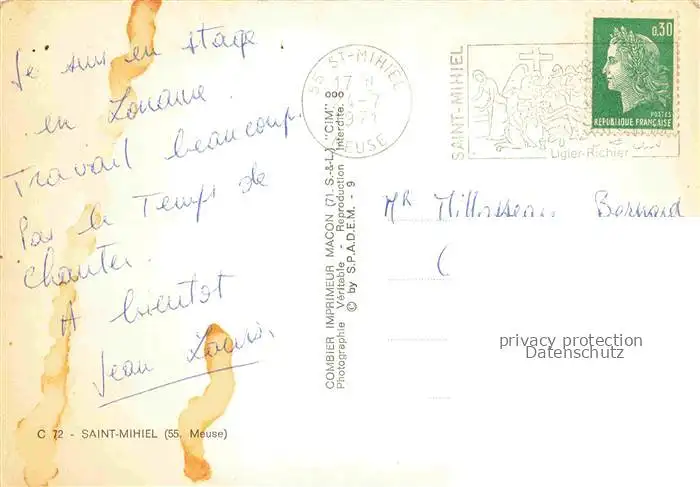 Je suis en stage
en Lorraine.
Travail beaucoup.
Pas le temps de
chanter.
A bientôt
Jean Louis
C 72 - SAINT-MIHIEL (55. Meuse)
COMBIER IMPRIMEUR MACON (71. S.-&-L.) "CIM"
Photographie Véritable - Reproduction Interdite.
© by S.P.A.D.E.M. - 9
55 ST-MIHIEL
17 H
-7
1971
MEUSE
SAINT-MIHIEL
Ligier-Richier
0,30
POSTES
REPUBLIQUE FRANÇAISE
Mr Bernard
privacy protection
Datenschutz